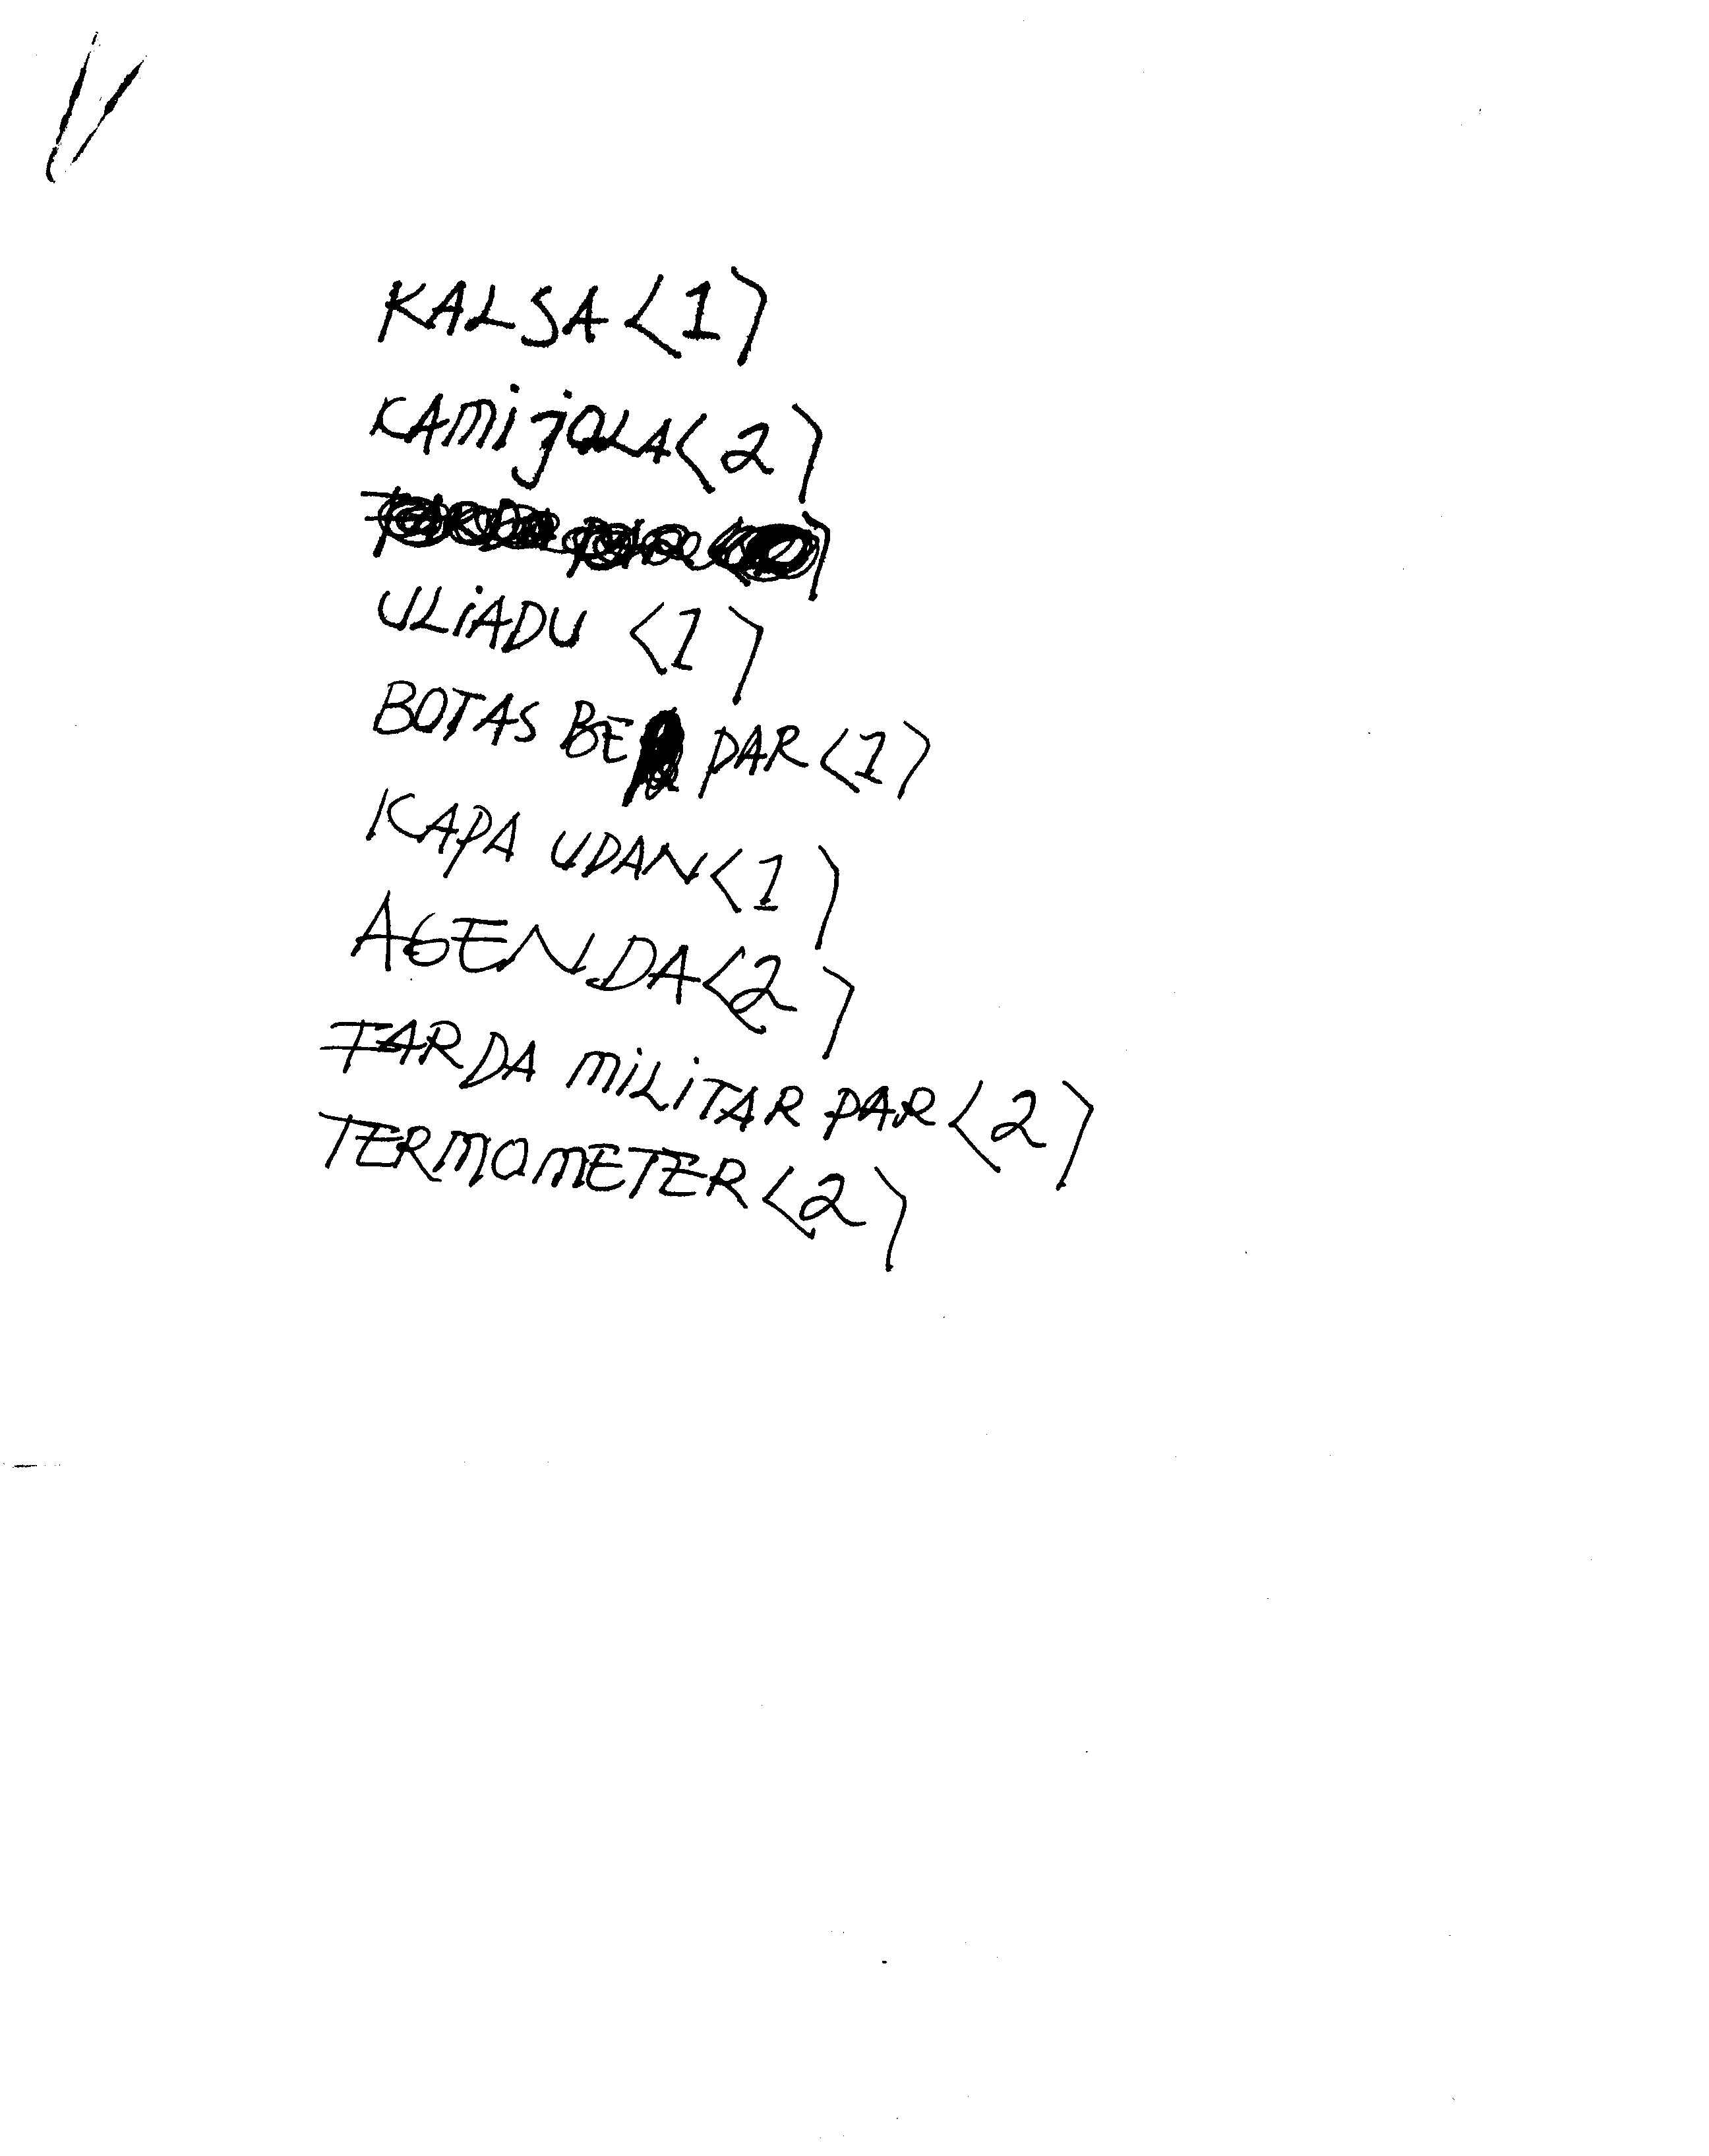 KALSA <1>
KAMiJOLA <2>
ULiADU <1>
BOTAS BE PAR <1>
KAPA UDAN <1>
AGENDA <2>
FARDA MiLiTAR PAR <2>
TERMOMETER <2>